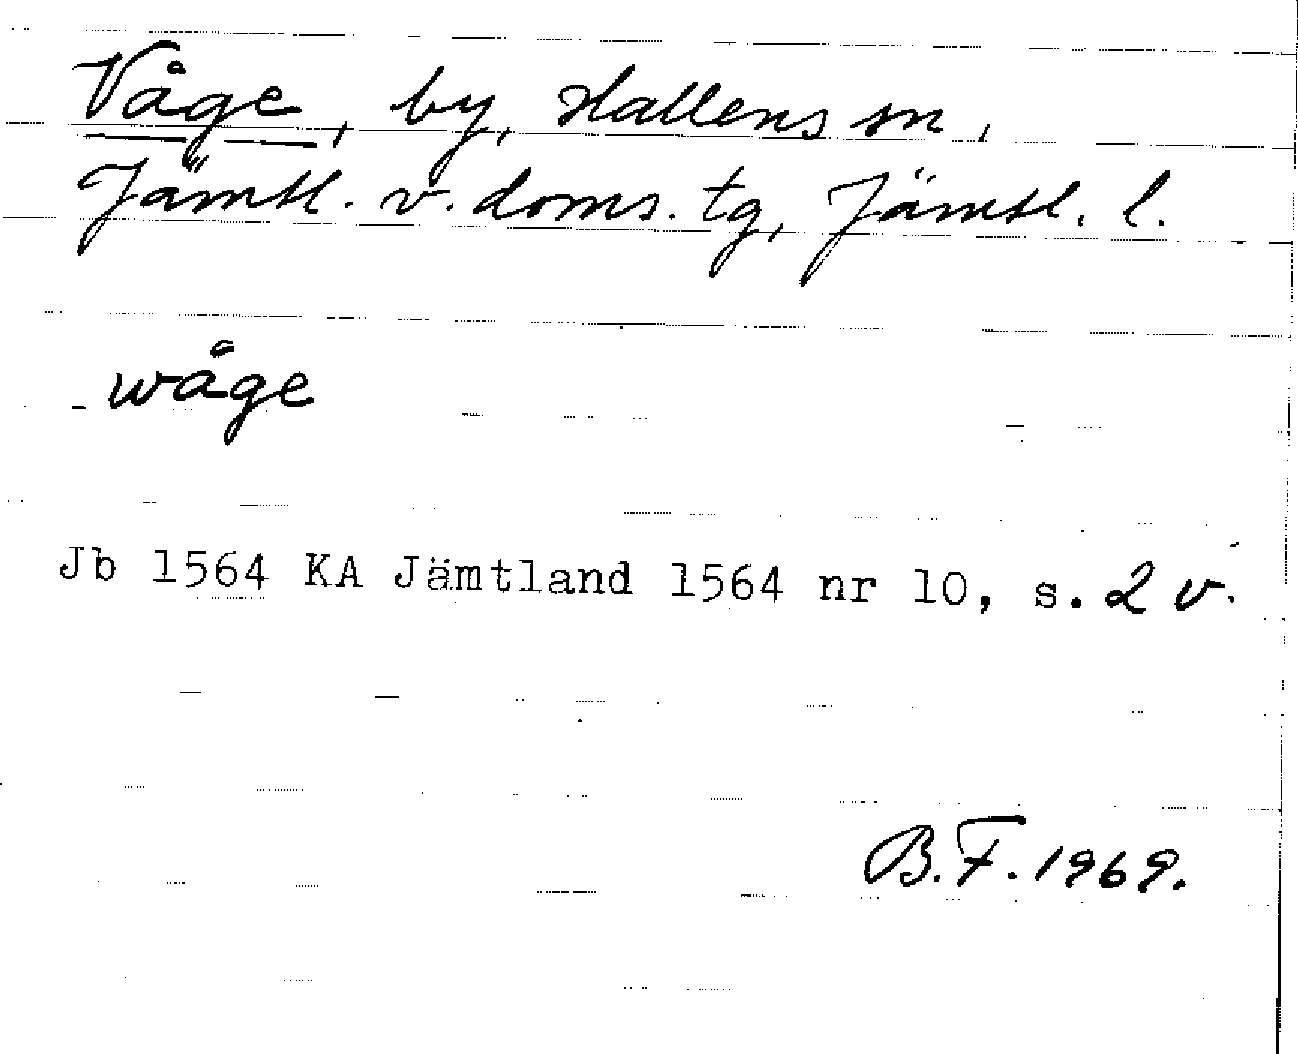 Våge, by, Hallens sn,
Jämtl. v. doms. tg, Jämtl. l.
wåge
Jb 1564 KA Jämtland 1564 nr 10, s. 2 v.
B.F. 1969.